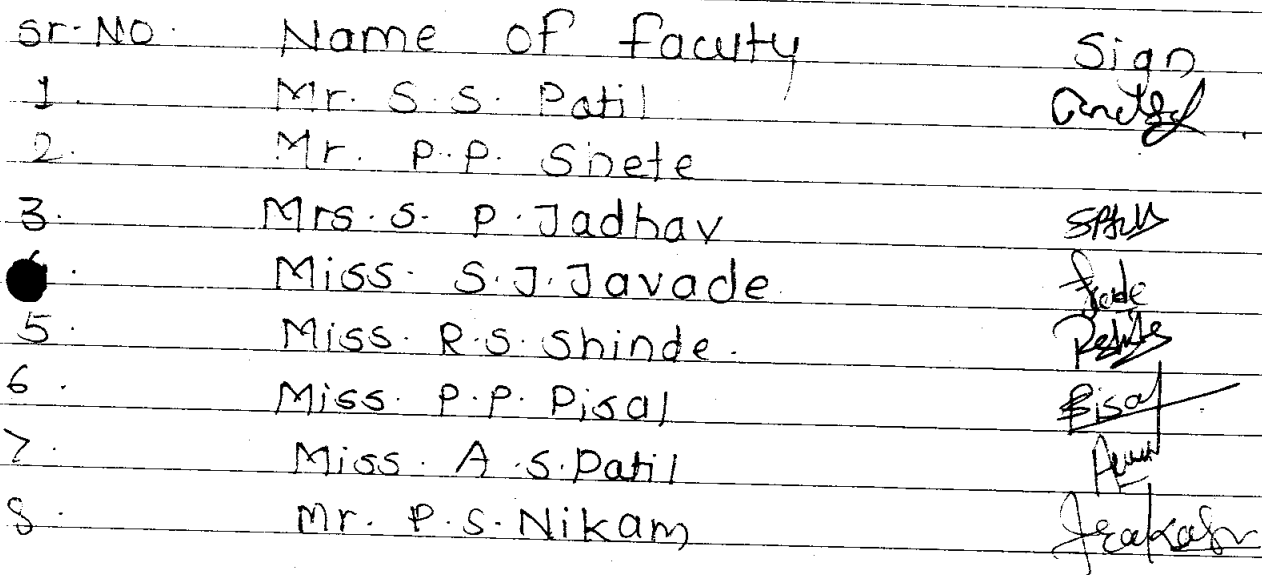 Sr. No. Name of facuty Sign
1. Mr. S. S. Patil
2. Mr. P. P. Shete
3. Mrs. S. P. Jadhav
Miss. S. J. Javade
5. Miss. R. S. Shinde.
6. Miss. P. P. Pisal Pisal
7. Miss. A. S. Patil
8. Mr. P. S. Nikam